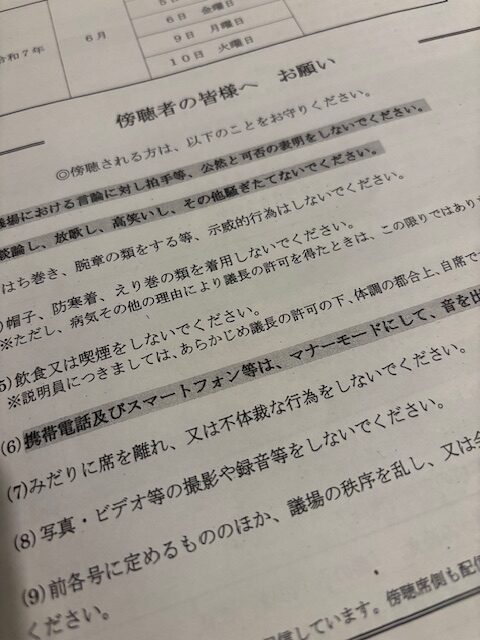 令和7年
6月
6日 金曜日
9日 月曜日
10日 火曜日
傍聴者の皆様へ お願い
◎傍聴される方は、以下のことをお守りください。
議場における言論に対し拍手等、公然と可否の表明をしないでください。
談論し、放歌し、高笑いし、その他騒ぎたてないでください。
はち巻き、腕章の類をする等、示威的行為はしないでください。
)帽子、防寒着、えり巻の類を着用しないでください。
※ただし、病気その他の理由により議長の許可を得たときは、この限りではありま
5)飲食又は喫煙をしないでください。
※説明員につきましては、あらかじめ議長の許可の下、体調の都合上、自席で
(6)携帯電話及びスマートフォン等は、マナーモードにして、音を出
(7)みだりに席を離れ、又は不体裁な行為をしないでください。
(8)写真・ビデオ等の撮影や録音等をしないでください。
(9)前各号に定めるもののほか、議場の秩序を乱し、又は会
ください。
信しています。傍聴席側も配信